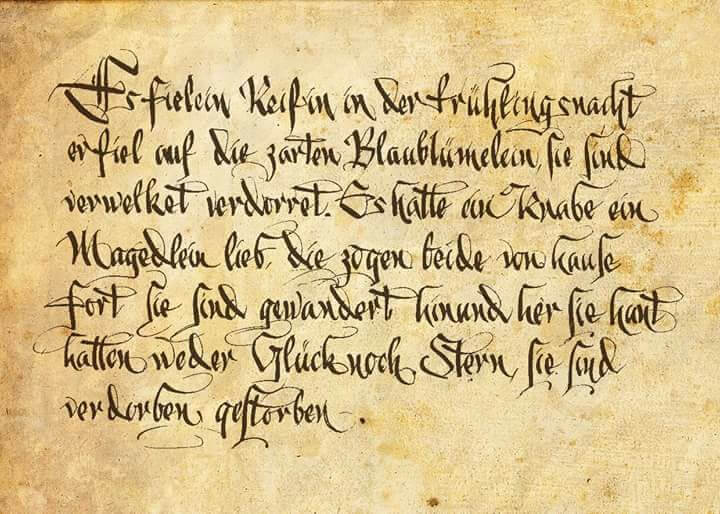 Es fiel ein Reif in in der frühlingsnacht
er fiel auf die zarten Blaublümelein, sie sind
verwelket verdorret. Es hatte ein Knabe ein
Magedlein lieb, die zogen beide von hause
fort sie sind gewandert hin und her sie hant
hatten weder Glück noch Stern, sie sind
verdorben gestorben.